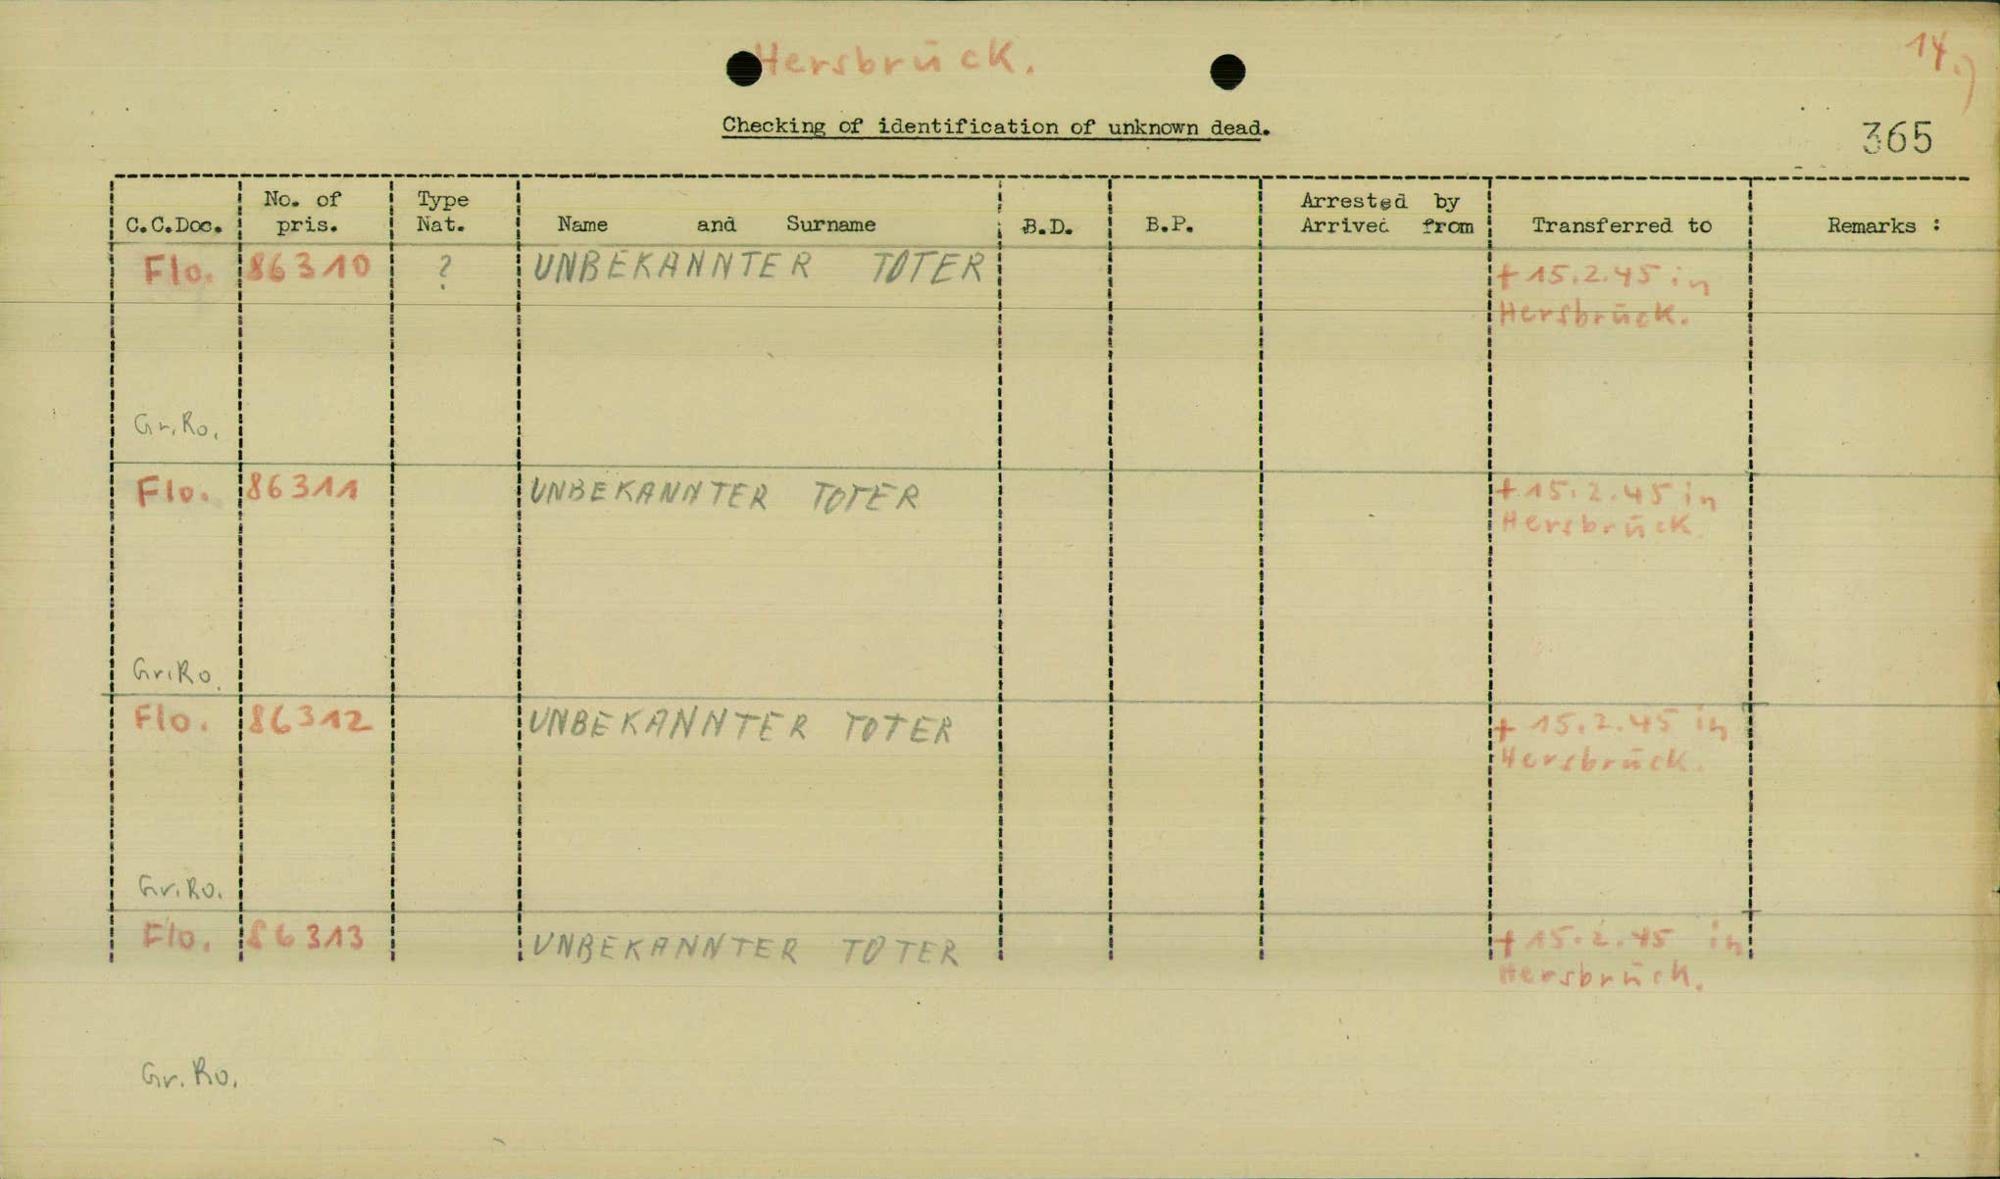 Hersbrück.
14.)
Checking of identification of unknown dead.
365
C.C.Doc. No. of pris. Type Nat. Name and Surname B.D. B.P. Arrested by Arrived from Transferred to Remarks :
Flo. 86310 ? UNBEKANNTER TOTER + 15.2.45 in
Hersbrück.
Gr.Ro.
Flo. 86311 UNBEKANNTER TOTER + 15.2.45 in
Hersbrück
Gr.Ro.
Flo. 86312 UNBEKANNTER TOTER + 15.2.45 in
Hersbrück.
Gr.Ro.
Flo. 86313 UNBEKANNTER TOTER + 15.2.45 in
Hersbrück.
Gr.Ro.